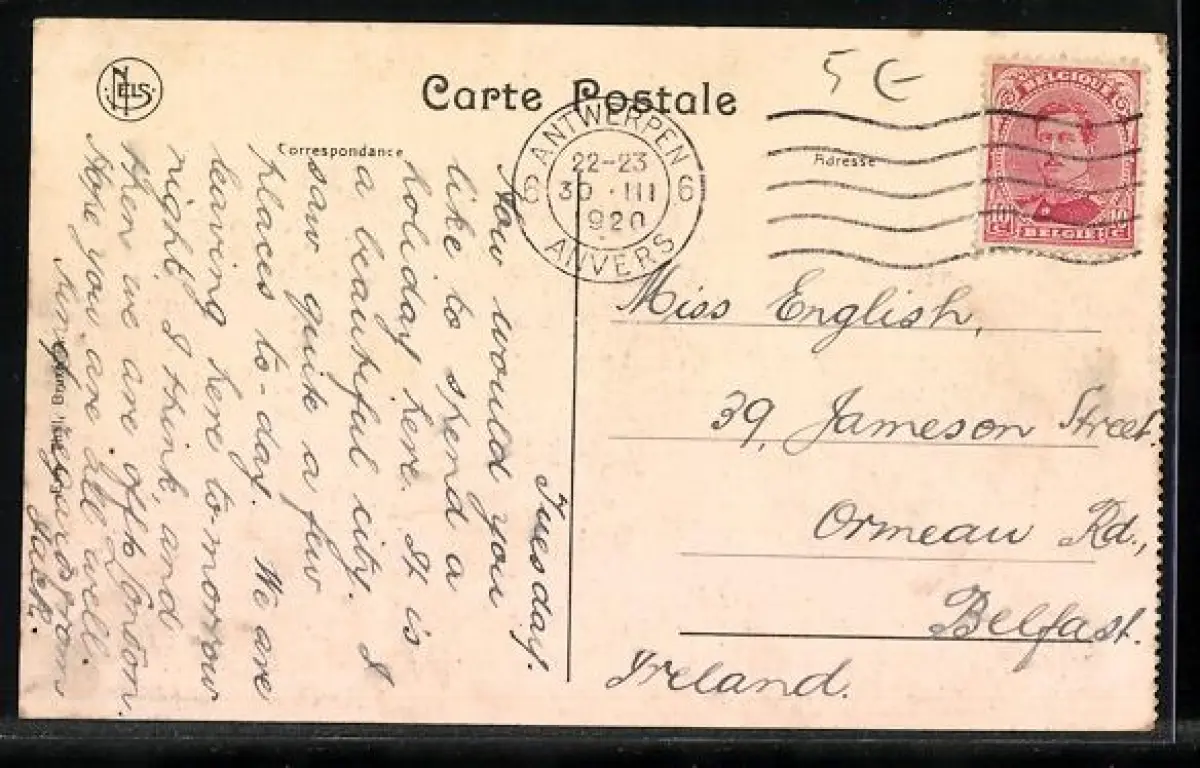 NELS
Carte Postale
5 €
Correspondance
Adresse
ANTWERPEN
22-23
6 30 · III 6
1920
ANVERS
BELGIQUE
10 c. 10 c.
BELGIË
Tuesday.
How would you
like to spend a
holiday here. It is
a beautiful city. I
saw quite a few
places to-day. We are
leaving here to-morrow
night, I think, and
then we are off to London.
Hope you are all well.
from
Jack.
Miss English,
39, Jameson Street.
Ormeau Rd.,
Belfast.
Ireland.